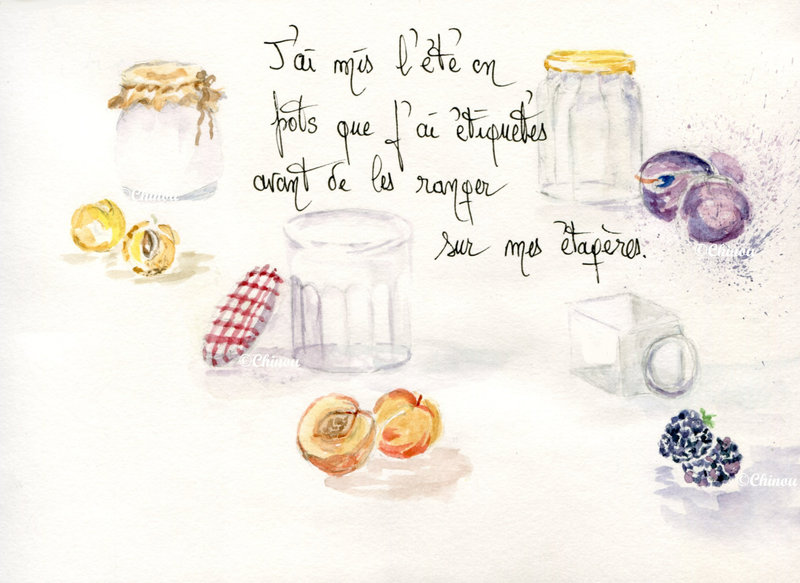 J'ai mis l'été en
pots que j'ai étiquetés
avant de les ranger
sur mes étagères.
©Chinou
©Chinou
©Chinou